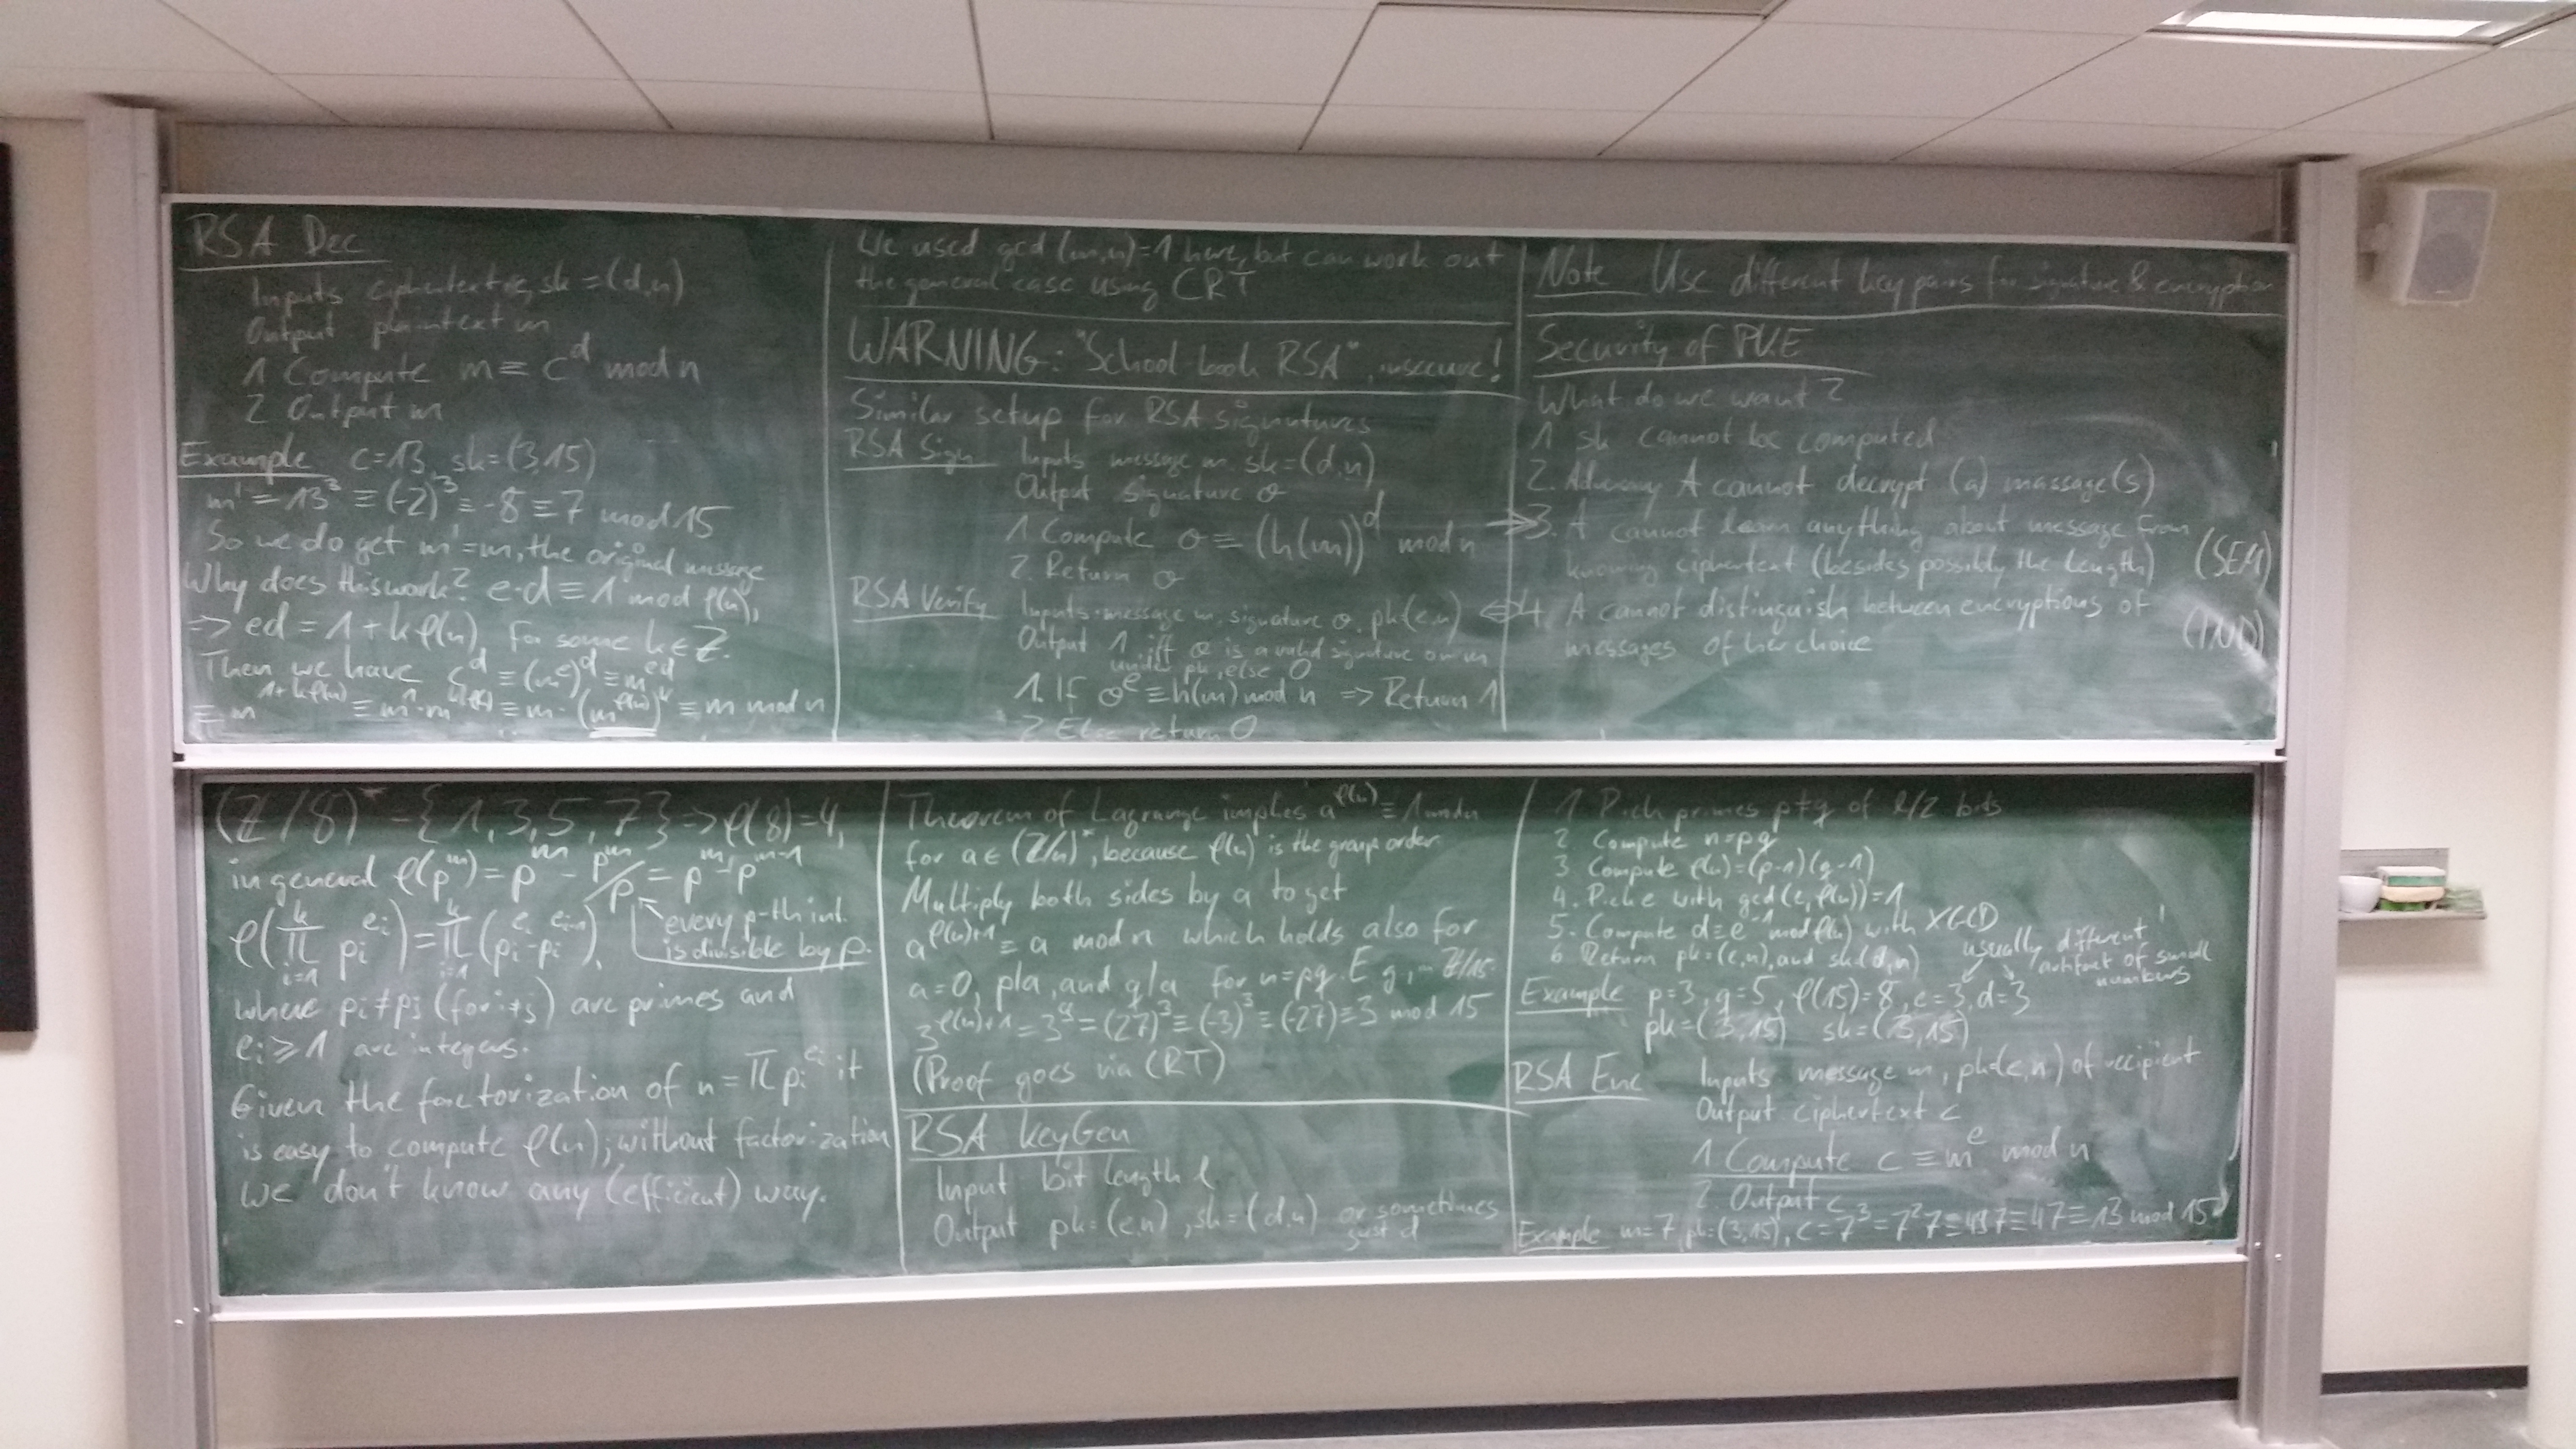 RSA Dec
Inputs ciphertext c, sk = (d,n)
Output plaintext m
1 Compute m ≡ c^d mod n
2 Output m
Example c=13, sk=(3,15)
m' = 13^3 ≡ (-2)^3 ≡ -8 ≡ 7 mod 15
So we do get m'=m, the original message
Why does this work? e·d ≡ 1 mod φ(n),
=> ed = 1+kφ(n) for some k∈Z.
Then we have c^d ≡ (m^e)^d ≡ m^ed
≡ m^1+kφ(n) ≡ m^1·m^kφ(n) ≡ m·(m^φ(n))^k ≡ m mod n
We used gcd(m,n)=1 here, but can work out
the general case using CRT
WARNING: "School-book RSA", insecure!
Similar setup for RSA signatures
RSA Sign Inputs message m, sk=(d,n)
Output signature σ
1 Compute σ ≡ (h(m))^d mod n
2. Return σ
RSA Verify Inputs message m, signature σ, pk(e,n)
Output 1 iff σ is a valid signature on m
under pk, else 0
1. If σ^e ≡ h(m) mod n => Return 1
2 Else return 0
Note Use different key pairs for signature & encryption
Security of PKE
What do we want?
1 sk cannot be computed
2. Adversary A cannot decrypt (a) massage(s)
→ 3. A cannot learn anything about message from
knowing ciphertext (besides possibly the length) (SEM)
⇔ 4. A cannot distinguish between encryptions of
messages of her choice (IND)
(Z/8)* = {1,3,5,7} => φ(8)=4,
in general φ(p^m) = p^m - p^m/p = p^m - p^m-1
every p-th int.
is divisible by p.
φ(∏ i=1 k pi^ei) = ∏ i=1 k (pi^ei - pi^ei-1),
where pi≠pj (for i≠j) are primes and
ei ≥ 1 are integers.
Given the factorization of n = ∏ pi^ei it
is easy to compute φ(n); without factorization
we don't know any (efficient) way.
Theorem of Lagrange implies a^φ(n) ≡ 1 mod n
for a ∈ (Z/n)*, because φ(n) is the group order.
Multiply both sides by a to get
a^φ(n)+1 ≡ a mod n which holds also for
a=0, p|a, and q|a for n=pq. E.g, in Z/15.
3^φ(n)+1 = 3^9 = (27)^3 ≡ (-3)^3 ≡ (-27) ≡ 3 mod 15
(Proof goes via CRT)
RSA KeyGen
Input bit length ℓ
Output pk=(e,n), sk=(d,n) or sometimes
just d
1. Pick primes p≠q of ℓ/2 bits
2. Compute n=pq
3. Compute φ(n)=(p-1)(q-1)
4. Pick e with gcd(e,φ(n))=1
5. Compute d≡e^-1 mod φ(n) with XGCD
6 Return pk=(e,n), and sk=(d,n)
usually different!
artifact of small
numbers
Example p=3, q=5, φ(15)=8, e=3, d=3
pk=(3,15) sk=(3,15)
RSA Enc Inputs message m, pk=(e,n) of recipient
Output ciphertext c
1 Compute c ≡ m^e mod n
2. Output c
Example m=7, pk=(3,15), c=7^3=7^2 7≡49 7≡4 7≡13 mod 15